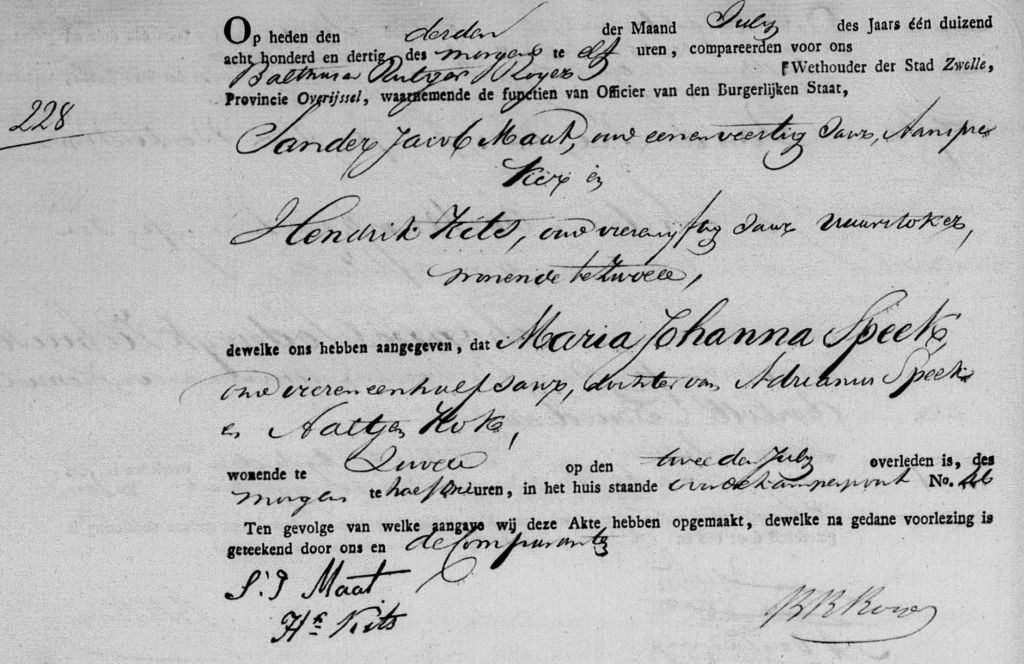 Op heden den derden der Maand July des Jaars één duizend
acht honderd en dertig, des morgens te elf uren, compareerden voor ons
Balthasar Rutger Royer Wethouder der Stad Zwolle,
Provincie Overijssel, waarnemende de functien van Officier van den Burgerlijken Staat,
228
Sander Jacob Maat, oud eenenveertig Jaar, Aanspre
ker en
Hendrik Kits, oud vierenvyftag Jaar vuurstoker,
wonende te Zwolle,
dewelke ons hebben aangegeven, dat Maria Johanna Speek
oud vier en een half Jaar, dochter van Adrianus Speek
en Aaltjen Kok,
wonende te Zwolle op den tweeden July overleden is, des
morgens te half uren, in het huis staande No.
Ten gevolge van welke aangave wij deze Akte hebben opgemaakt, dewelke na gedane voorlezing is
geteekend door ons en de Comparanten
S. J Maat
Hk Kits